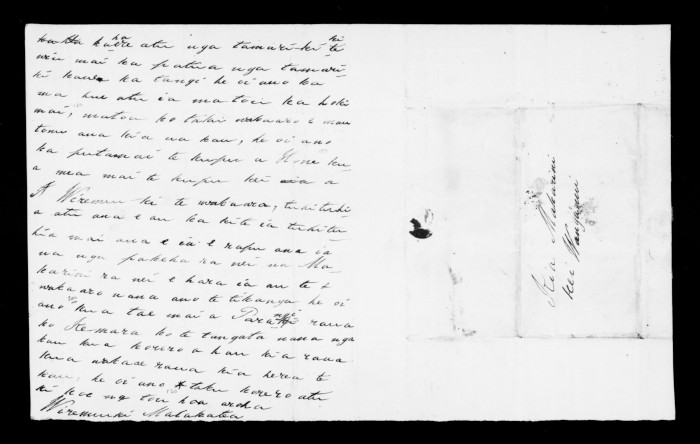 haere atu nga tamariki ki te
mai ka patua nga tamariki
ka tangi he oi ano ka
ma hue atu ia matou ka hoki
mai, matou ko taku wakaaro e mau
tonu ana kia ua kau, he oi ano
ka puta mai te kupu a Hone
a mea mai te kupu kei ia a
Wiremu ki te wakaara, tuhituhi
a atu ana e au ka kite ia tuhituhi
hia mai ana e ia e rapu ana ia
na nga pakeha ra nei na Ma
karini ra nei e hara ia au te
wakaaro nana ano te tikanga he oi
ano kua tae mai a Parangi raua
ko Kemara ko te tangata nana nga
kau kua korero a hau kia raua
kua wakaae raua kia herea te
kau, he oi ano taku korero atu
ki koe na tou hoa aroha
Wiremu ki Matakatea
Kia Makarini
kei Wanganui